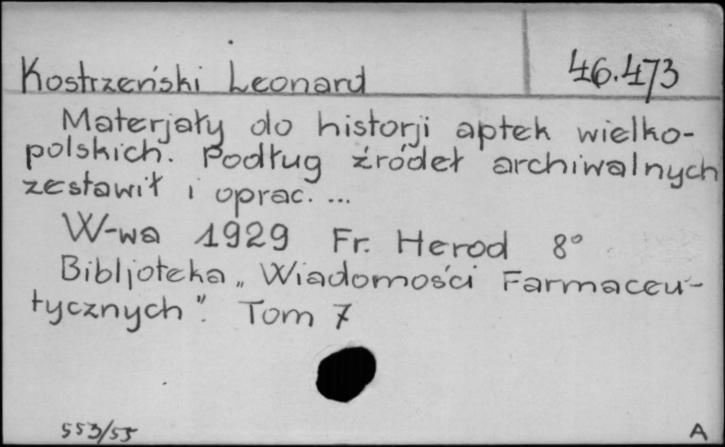 Kostrzeński Leonard 46.473
Materjały do historji aptek wielko-
polskich. Podług źródeł archiwalnych
zestawił i oprac. ...
W-wa 1929 Fr. Herod 8°
Bibljoteka „Wiadomości Farmaceu-
tycznych". Tom 7
553/55 A